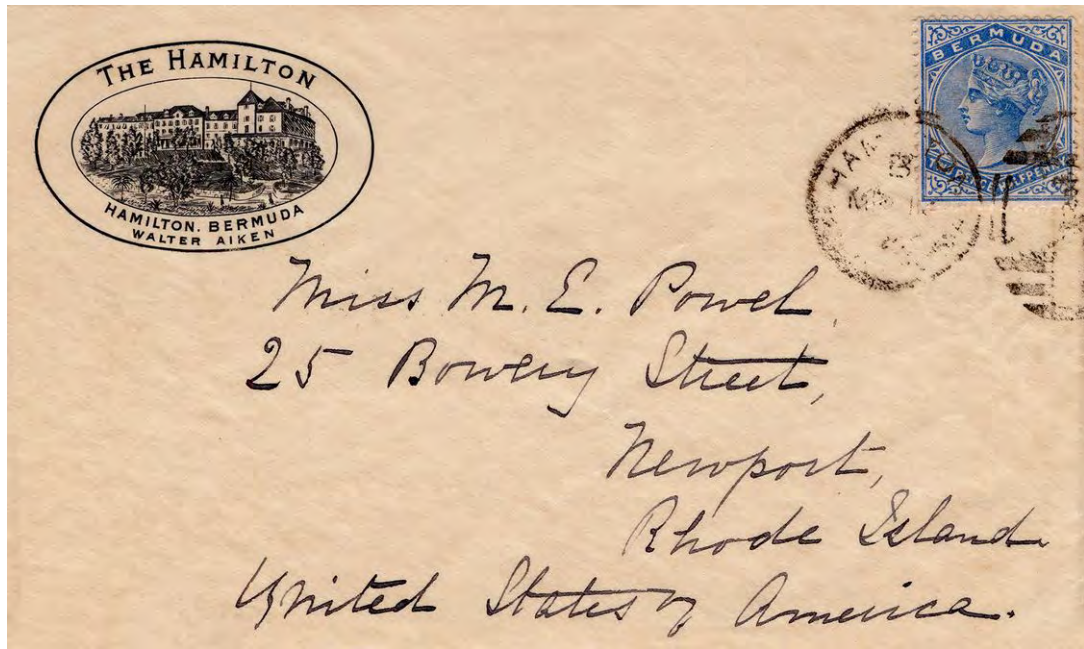 THE HAMILTON
HAMILTON, BERMUDA
WALTER AIKEN
BERMUDA
HAMILTON
Miss M. E. Powel,
25 Bowery Street,
Newport,
Rhode Island.
United States of America.